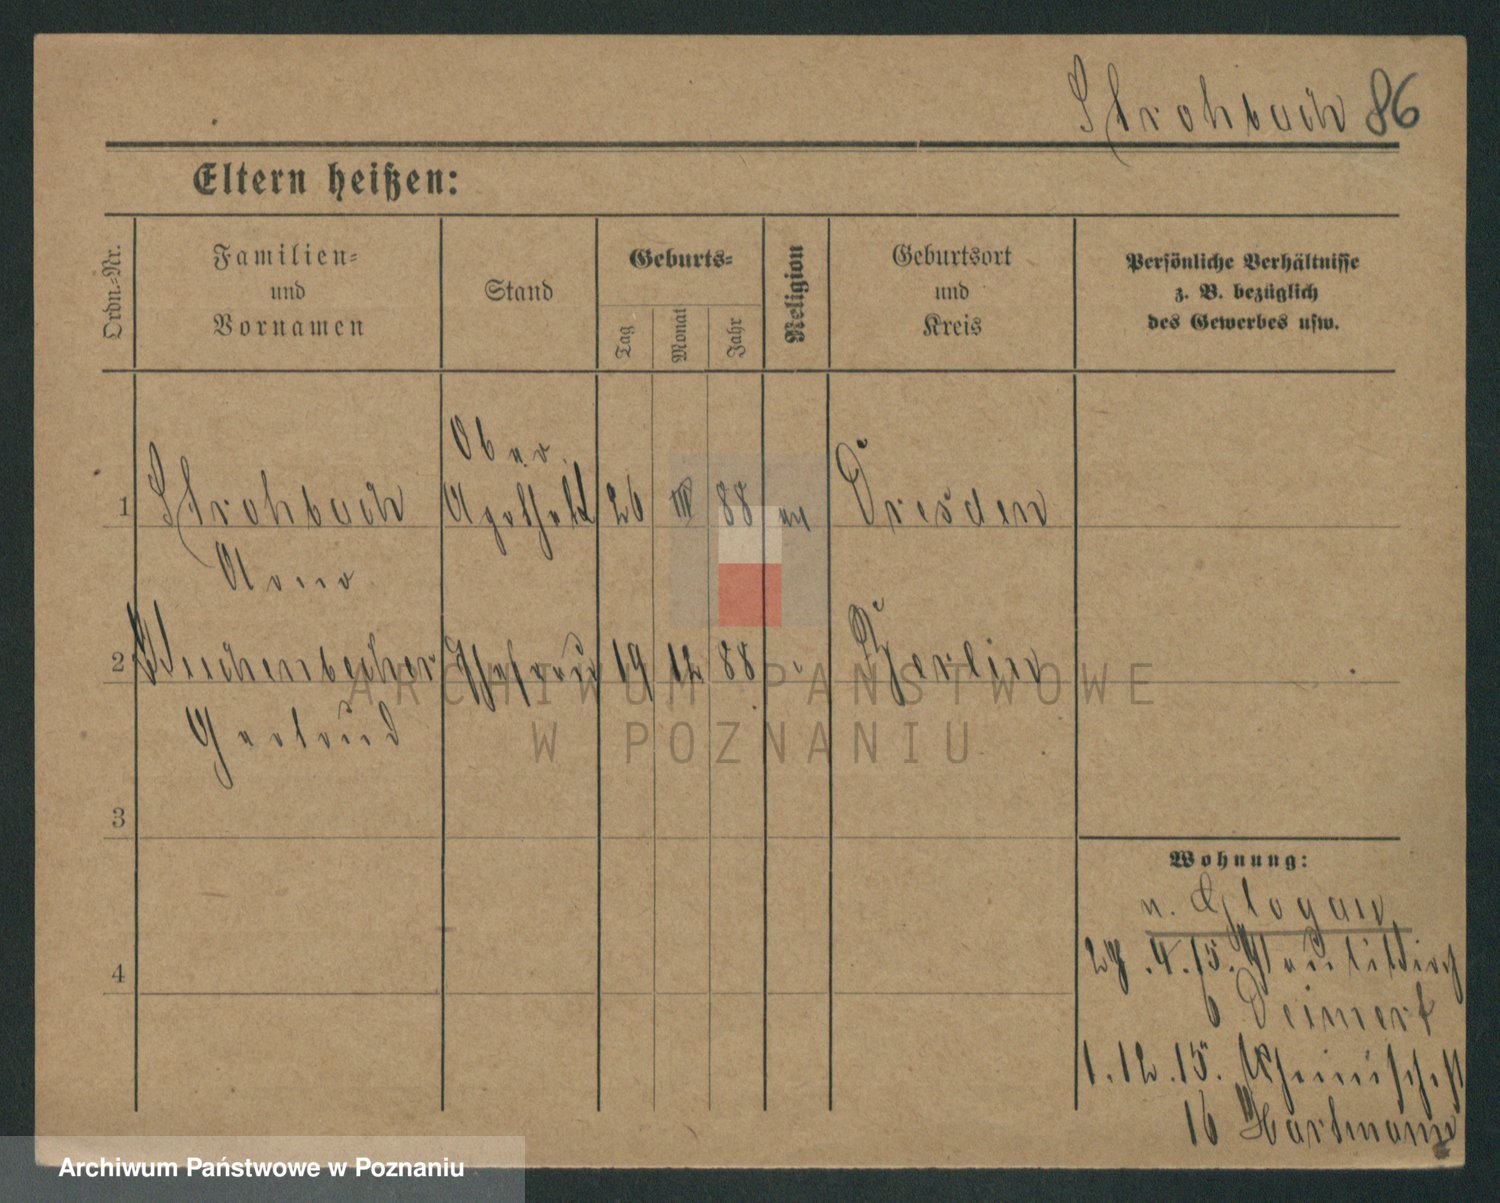 Strohbach 86
Eltern heißen:
Ordn.-Nr.
Familien-
und
Vornamen
Stand
Geburts-
Tag
Monat
Jahr
Religion
Geburtsort
und
Kreis
Persönliche Verhältnisse
z. B. bezüglich
des Gewerbes usw.
Ober
1 Strohbach 26 III 88 Dresden
Arno
2 Ehefrau 19 12 88 Berlin
Gertrud
3
4
Wohnung:
n. Glogau
4.15.
6
1.12.15.
16 Hartmann
ARCHIWUM PAŃSTWOWE
W POZNANIU
Archiwum Państwowe w Poznaniu